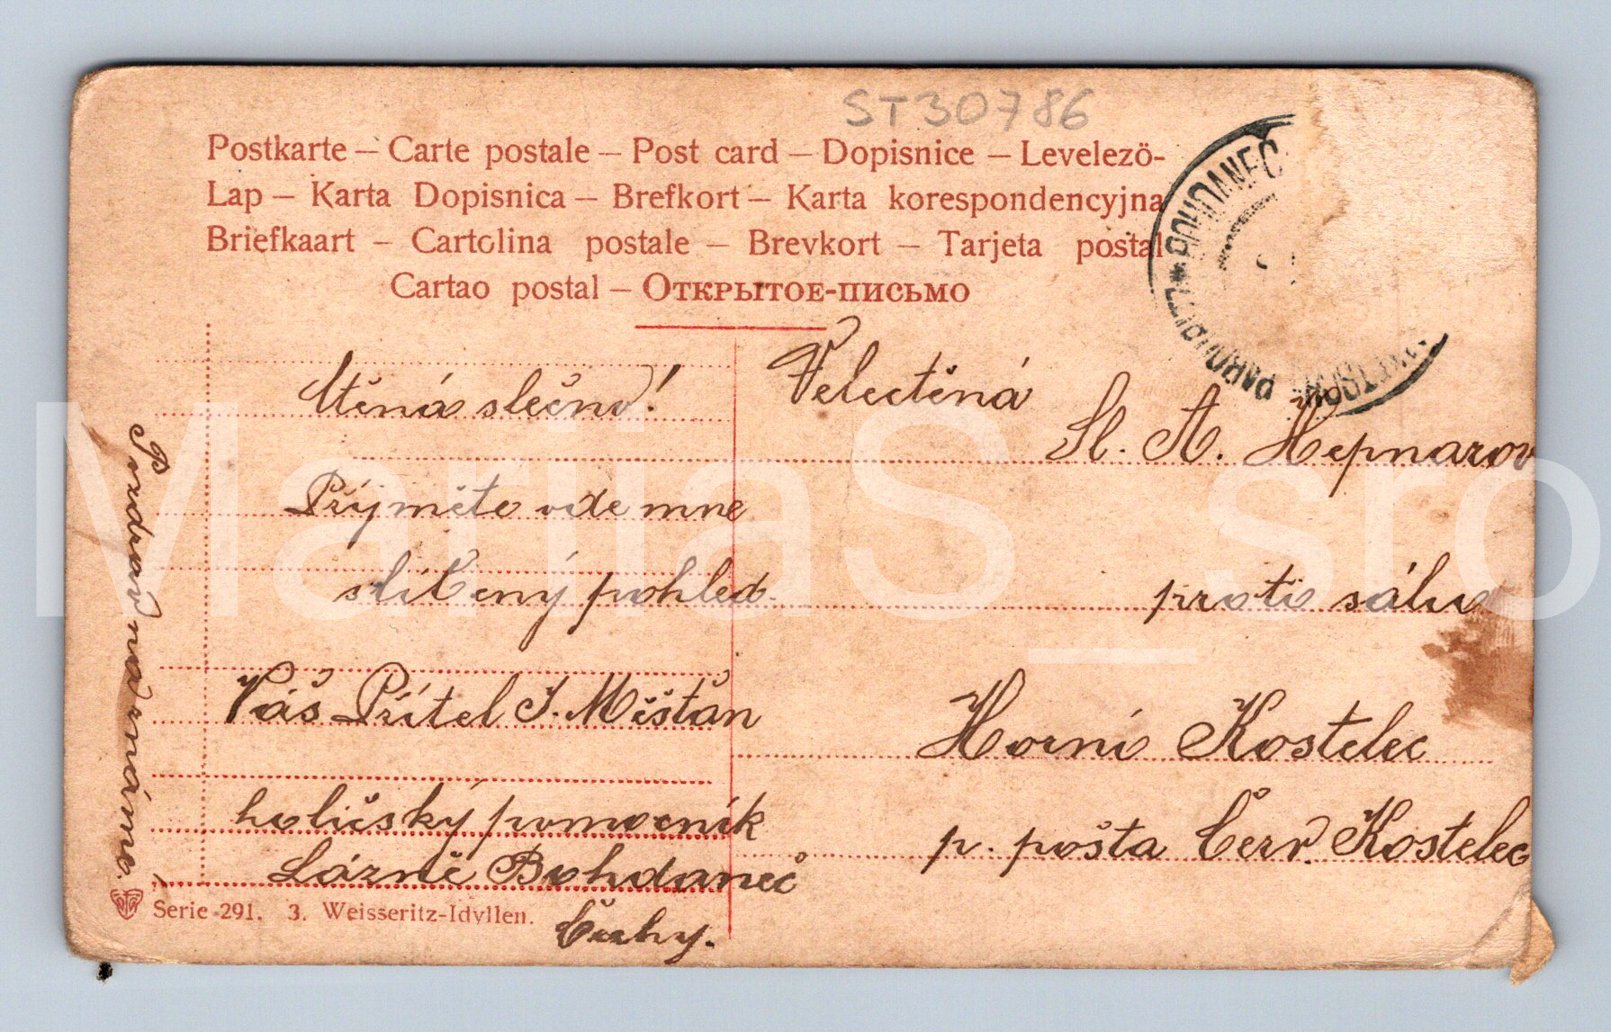 ST30786
Postkarte – Carte postale – Post card – Dopisnice – Levelezö-
Lap – Karta Dopisnica – Brefkort – Karta korespondencyjna
Briefkaart – Cartolina postale – Brevkort – Tarjeta postal
Cartao postal – Открытое-письмо
BOHDANEČ
PARDUBITZ
Velectěná
Sl. A. Hepnarov
proti sálu
Horní Kostelec
p. pošta Červ. Kostelec
Ctěná slečno!
Přijměte ode mne
slíbený pohled
Váš Přítel J. Měšťan
holičský pomocník
Lázně Bohdaneč
Čechy.
Pozdrav na známé.
Serie 291. 3. Weisseritz-Idyllen.
MariiaS_sro